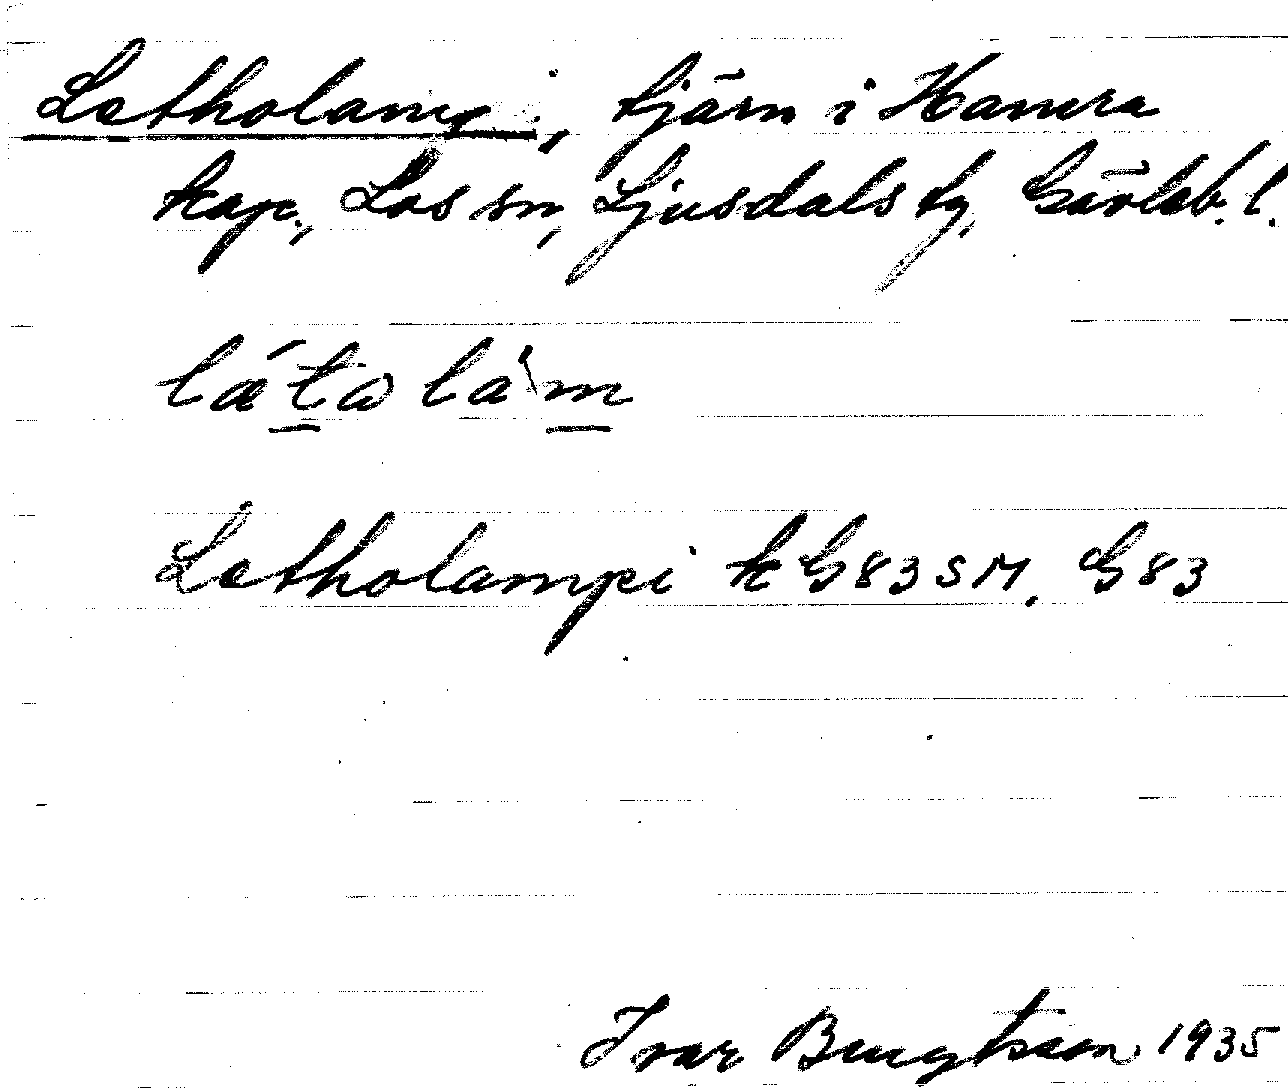 Letholamp, tjärn i Hamra
kap., Los sn, Ljusdals tg, Gävleb. l.
lǽtω là'm
Letholampi k G83SM. G83
Ivar Bengtsson 1935